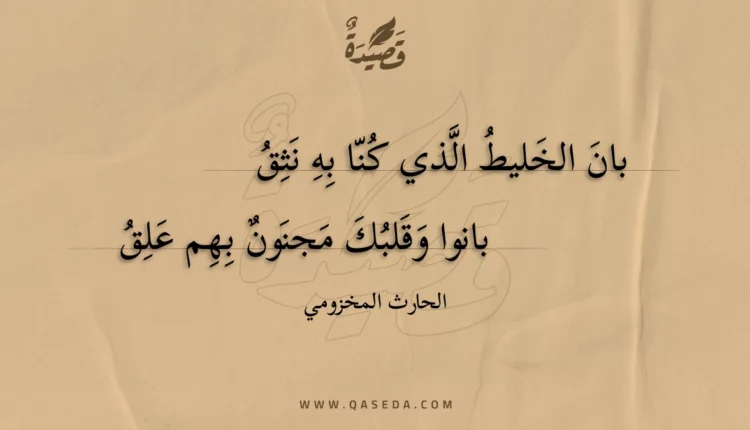 قَصِيدَةٌ
بانَ الخَليطُ الَّذي كُنّا بِهِ نَثِقُ
بانوا وَقَلبُكَ مَجنَونٌ بِهِم عَلِقُ
الحارث المخزومي
WWW.QASEDA.COM